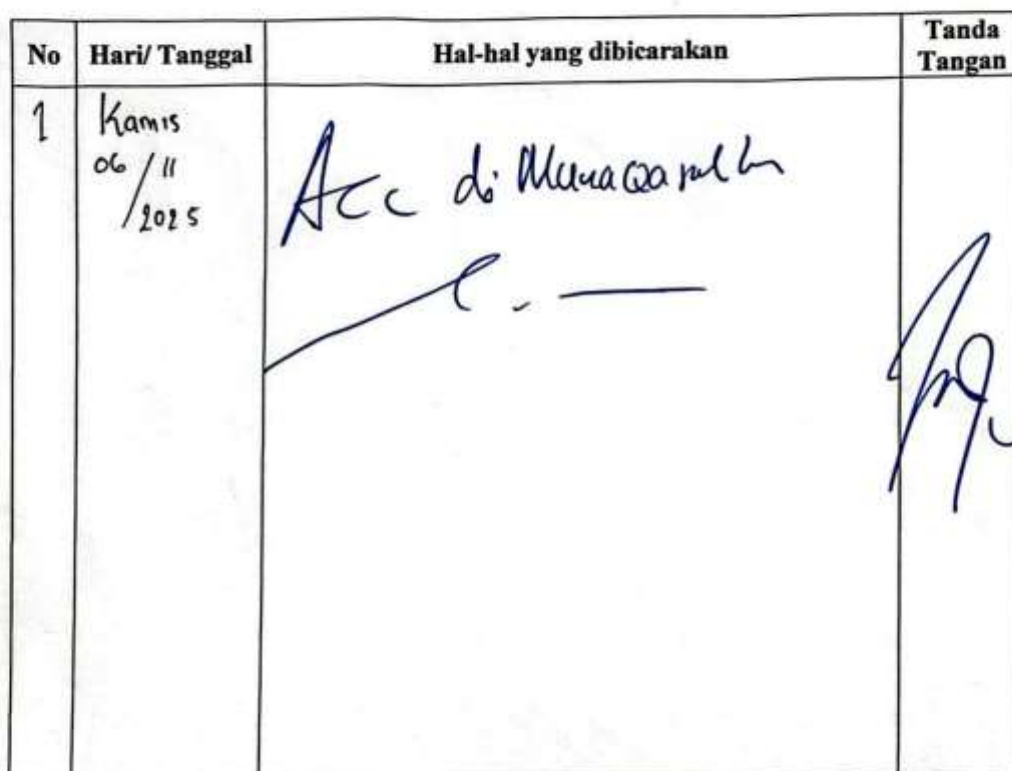 No Hari/ Tanggal Hal-hal yang dibicarakan Tanda Tangan
1 Kamis
06 / 11
/2025
Acc di Munaqasahkan